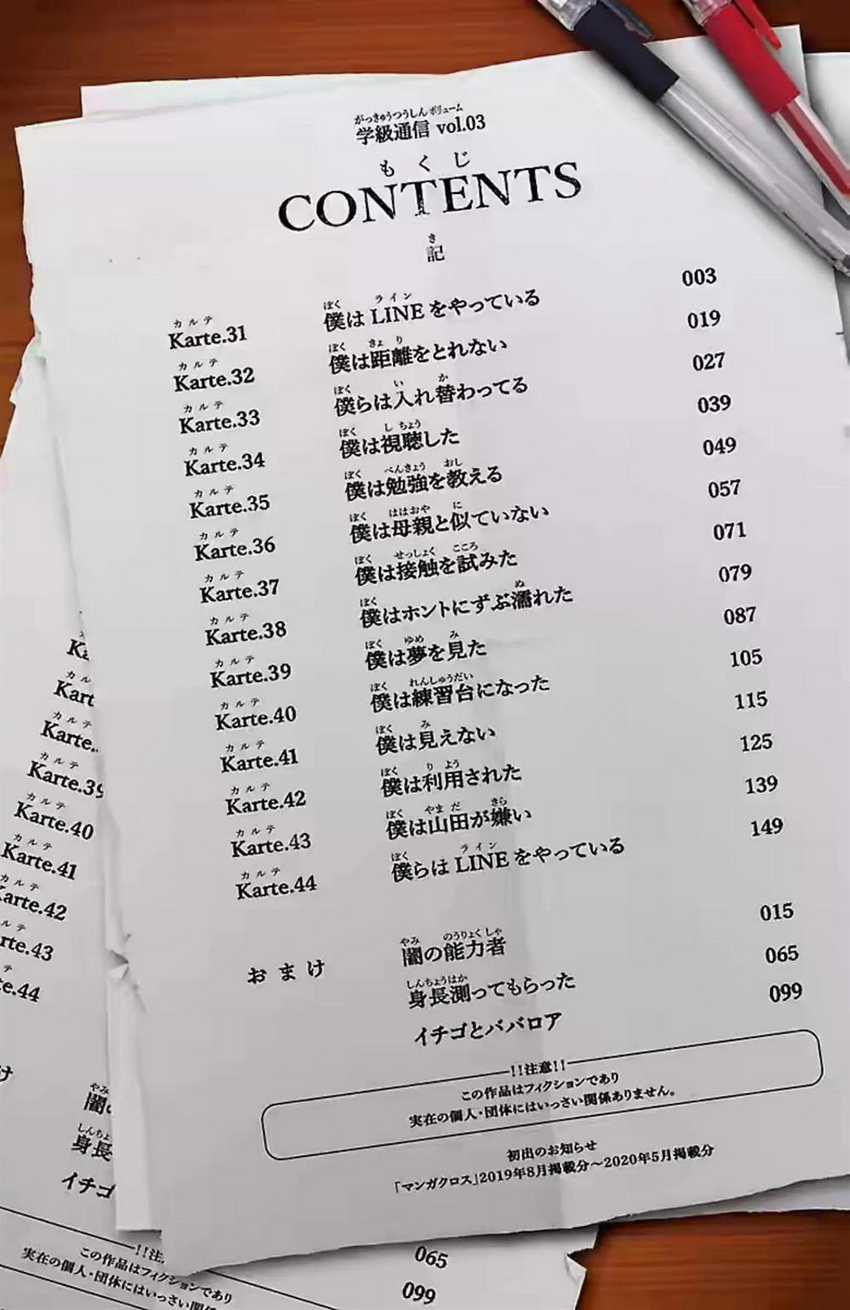 がっきゅうつうしん ボリューム
学級通信 vol.03
もくじ
CONTENTS
き
記
カルテ ぼく ライン
Karte.31 僕は LINE をやっている 003
カルテ ぼく きょり
Karte.32 僕は距離をとれない 019
カルテ ぼく い か
Karte.33 僕らは入れ替わってる 027
カルテ ぼく しちょう
Karte.34 僕は視聴した 039
カルテ ぼく べんきょう おし
Karte.35 僕は勉強を教える 049
カルテ ぼく ははおや に
Karte.36 僕は母親と似ていない 057
カルテ ぼく せっしょく こころ
Karte.37 僕は接触を試みた 071
カルテ ぼく ぬ
Karte.38 僕はホントにずぶ濡れた 079
カルテ ぼく ゆめ み
Karte.39 僕は夢を見た 087
カルテ ぼく れんしゅうだい
Karte.40 僕は練習台になった 105
カルテ ぼく み
Karte.41 僕は見えない 115
カルテ ぼく りよう
Karte.42 僕は利用された 125
カルテ ぼく やまだ きら
Karte.43 僕は山田が嫌い 139
カルテ ぼく ライン
Karte.44 僕らは LINE をやっている 149
やみ のうりょくしゃ
おまけ 闇の能力者 015
しんちょうはか
身長測ってもらった 065
イチゴとババロア 099
!!注意!!
この作品はフィクションであり
実在の個人・団体にはいっさい関係ありません。
初出のお知らせ
「マンガクロス」2019年8月掲載分〜2020年5月掲載分
カルテ
Kart
カルテ
Karte.
カルテ
Karte.39
カルテ
Karte.40
カルテ
Karte.41
カルテ
Karte.42
rte.43
e.44
け
やみ
闇の
しんちょう
身長
イチゴ
065
099
!!注
この作品はフィクション
実在の個人・団体にはいっさい関係